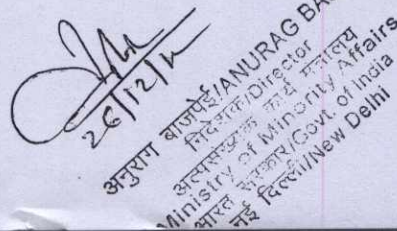 26/12/12
अनुराग बाजपेई/ANURAG BA
निदेशक/Director
अल्पसंख्यक कार्य मंत्रालय
Ministry of Minority Affairs
भारत सरकार/Govt. of India
नई दिल्ली/New Delhi